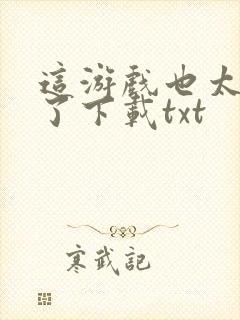 這游戲也太
了下載txt
寒武記